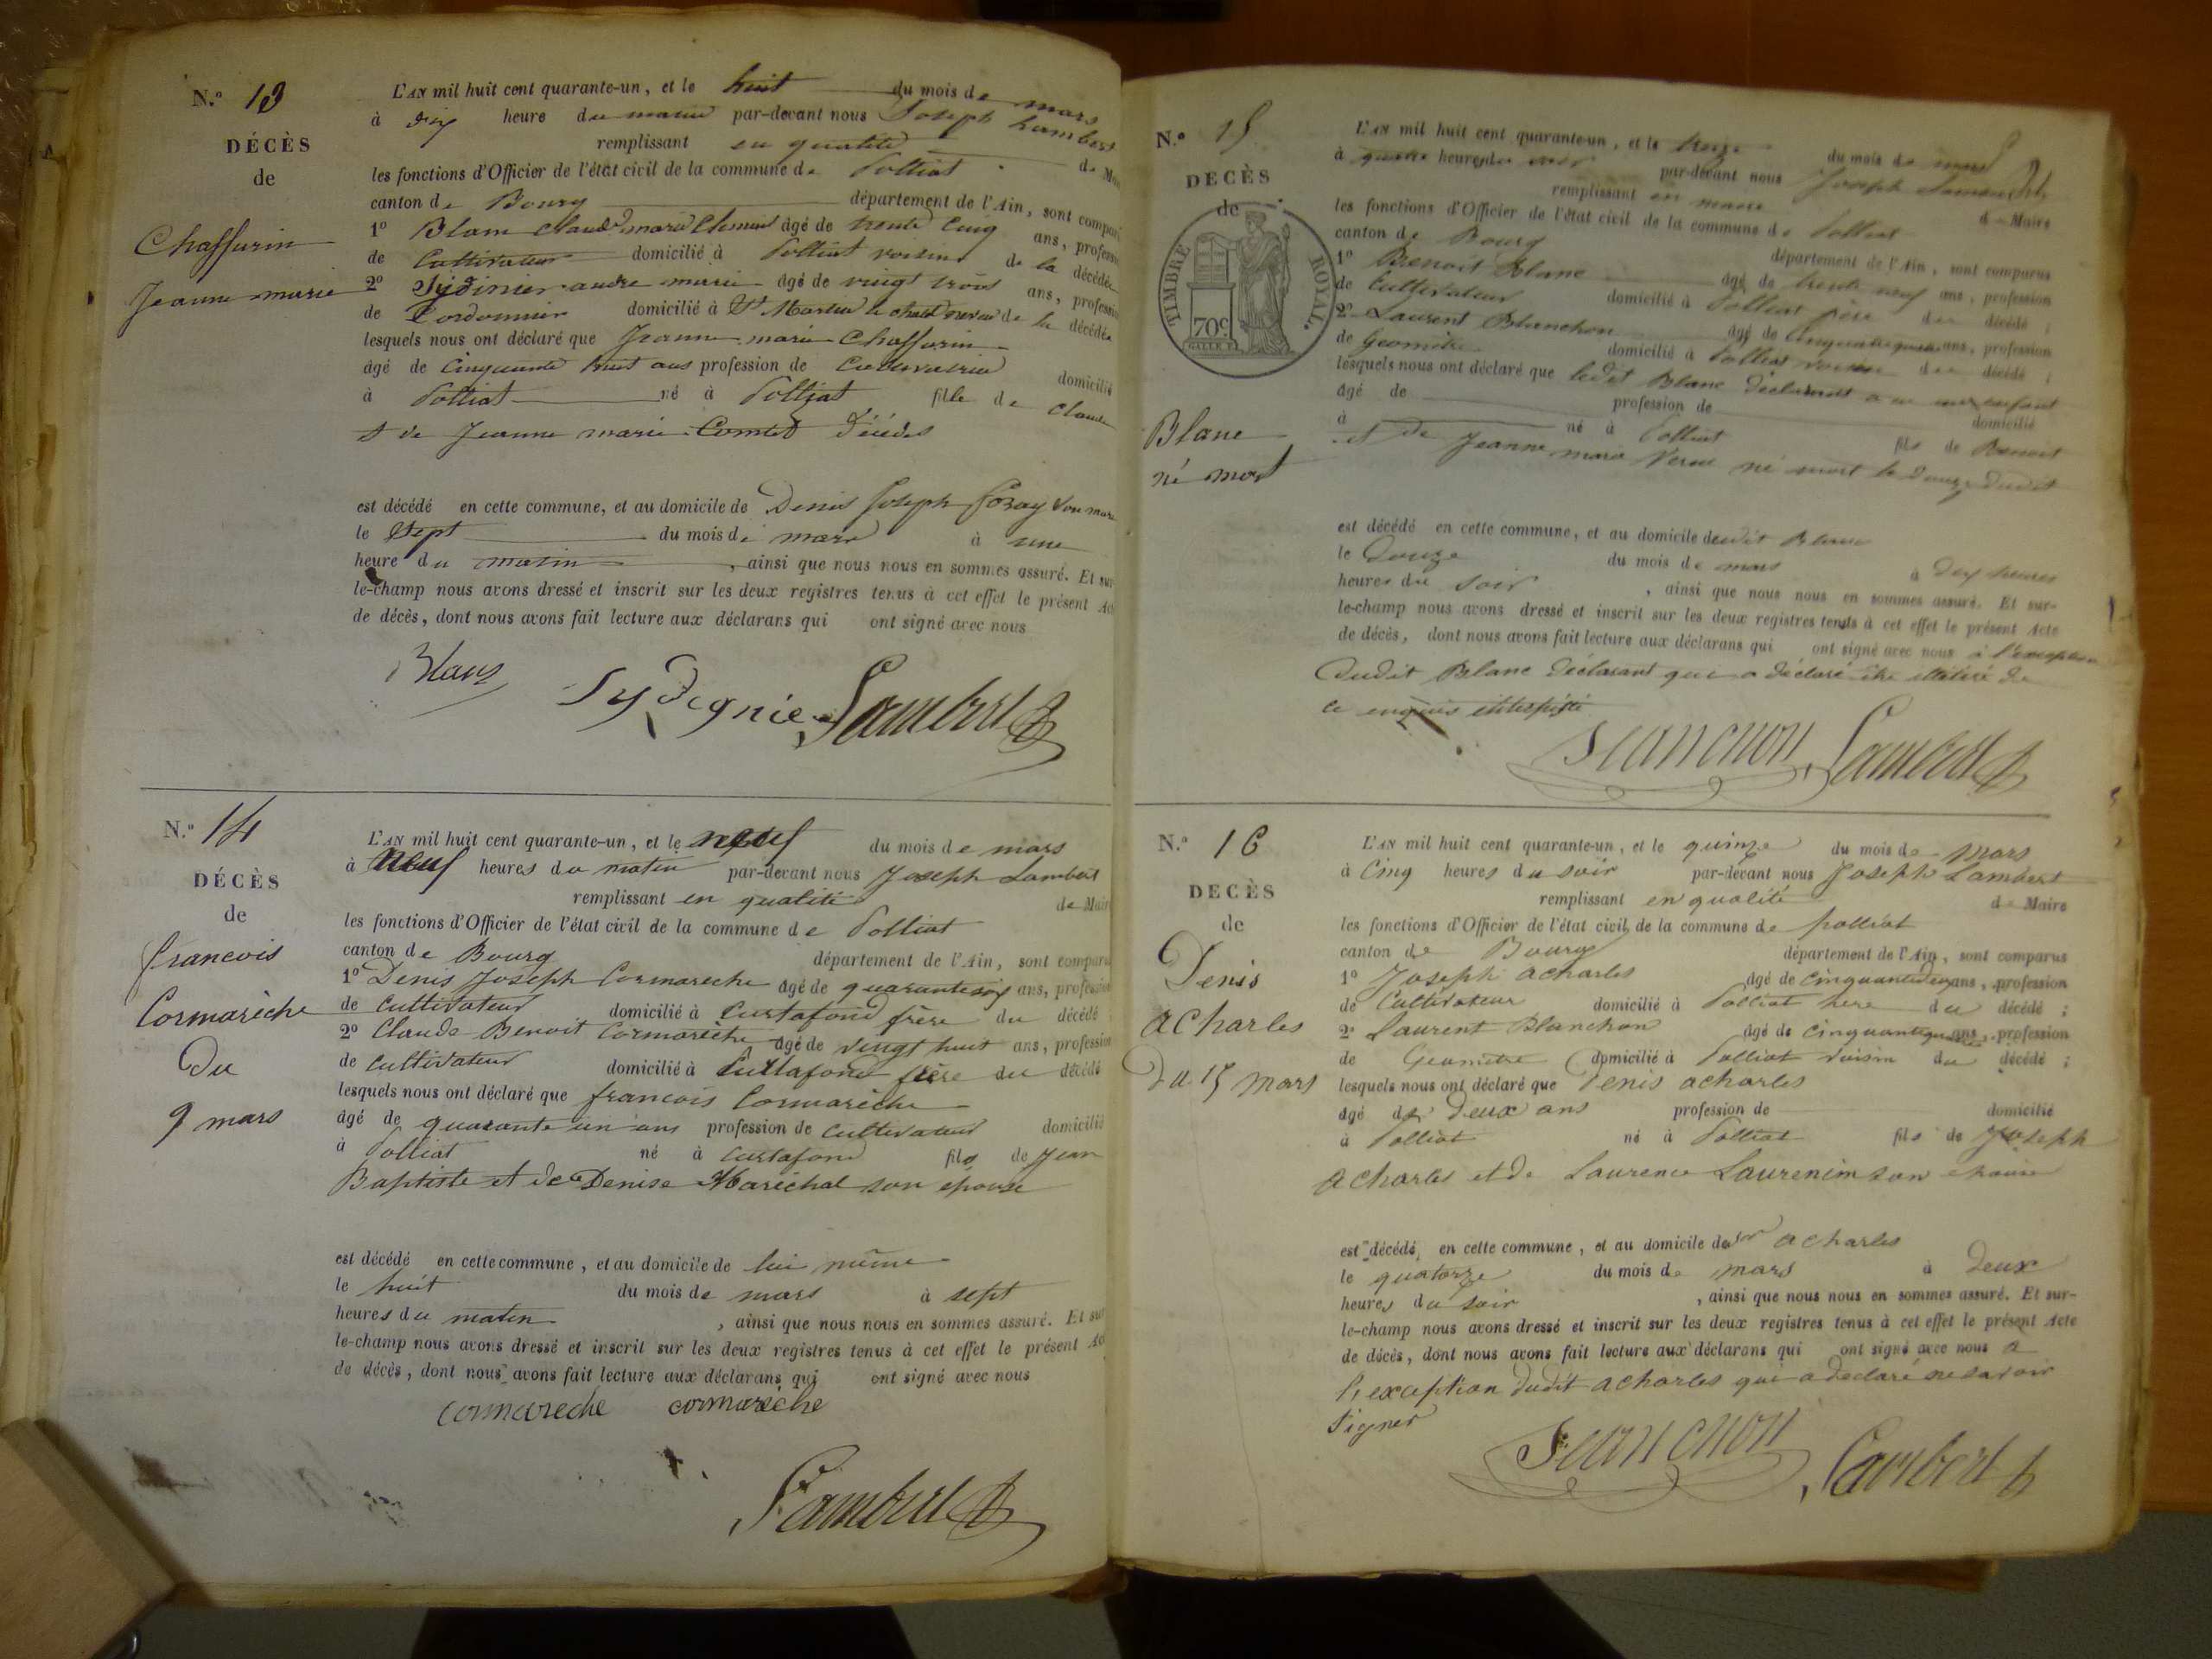 N.º 13
DÉCÈS
de
Chaffurin
Jeanne marie
L'AN mil huit cent quarante-un, et le huit du mois de mars
à dix heure du matin par-devant nous Joseph Lambert
remplissant en qualité de Mai
les fonctions d'Officier de l'état civil de la commune de Polliat
canton de Bourg département de l'Ain, sont compar
1º Blanc Claude marie Clement âgé de trente cinq ans, profession
de Cultivateur domicilié à Polliat voisin de la décédée
2º Sydinier andre marie âgé de vingt trois ans, profession
de Cordonnier domicilié à St Martin le chatel neveu de la décédée
lesquels nous ont déclaré que Jeanne marie Chaffurin
âgé de cinquante huit ans profession de Cultivatrice domicilié
à Polliat né à Polliat fille de Claude
et de Jeanne marie Comtet décédés
est décédé en cette commune, et au domicile de Denis Joseph Foray son mari
le Sept du mois de mars à une
heure du matin, ainsi que nous nous en sommes assuré. Et sur
le-champ nous avons dressé et inscrit sur les deux registres tenus à cet effet le présent Act
de décès, dont nous avons fait lecture aux déclarans qui ont signé avec nous
Blanc Sydignie Lambert
N.º 14
DÉCÈS
de
francois
Cormarèche
Du
9 mars
L'AN mil huit cent quarante-un, et le neuf du mois de mars
à neuf heures du matin par-devant nous Joseph Lambert
remplissant en qualité de Mair
les fonctions d'Officier de l'état civil de la commune de Polliat
canton de Bourg département de l'Ain, sont comparu
1º Denis Joseph Cormareche âgé de quarante six ans, profession
de Cultivateur domicilié à Curtafond frère du décédé
2º Claude Benoit Cormarèche âgé de vingt huit ans, profession
de cultivateur domicilié à Curtafond frère du décédé
lesquels nous ont déclaré que francois Cormarèche
âgé de quarante un ans profession de cultivateur domicilié
à Polliat né à Curtafond fils de Jean
Baptiste et de Denise Maréchal son épouse
est décédé en cette commune, et au domicile de lui même
le huit du mois de mars à sept
heures du matin, ainsi que nous nous en sommes assuré. Et sur
le-champ nous avons dressé et inscrit sur les deux registres tenus à cet effet le présent Act
de décès, dont nous avons fait lecture aux déclarans qui ont signé avec nous
cormareche cormarèche
Lambert
N.º 15
DÉCÈS
de
TIMBRE ROYAL.
70c
Blanc
né mort
L'AN mil huit cent quarante-un, et le treize du mois de mars
à quatre heures du soir par-devant nous Joseph Lambert
remplissant en mairie de Maire
les fonctions d'Officier de l'état civil de la commune de Polliat
canton de Bourg département de l'Ain, sont comparus
1º Benoit Blanc âgé de trente neuf ans, profession
de Cultivateur domicilié à Polliat père du décédé;
2º Laurent Blanchon âgé de cinquante quatre ans, profession
de Géomètre domicilié à Polliat voisin du décédé;
lesquels nous ont déclaré que ledit Blanc déclarant a eu un enfant
âgé de profession de domicilié
à né à Polliat fils de Benoit
et de Jeanne marie né mort le douze dudit
est décédé en cette commune, et au domicile dudit Blanc
le Douze du mois de mars à dix heures
heures du soir, ainsi que nous nous en sommes assuré. Et sur-
le-champ nous avons dressé et inscrit sur les deux registres tenus à cet effet le présent Acte
de décès, dont nous avons fait lecture aux déclarans qui ont signé avec nous à l'exception
Dudit Blanc déclarant qui a déclaré être illitéré de
ce enquis
Blanchon Lambert
N.º 16
DÉCÈS
de
Denis
acharles
Du 15 mars
L'AN mil huit cent quarante-un, et le quinze du mois de mars
à Cinq heures du soir par-devant nous Joseph Lambert
remplissant en qualité de Maire
les fonctions d'Officier de l'état civil de la commune de polliat
canton de Bourg département de l'Ain, sont comparus
1º Joseph acharles âgé de cinquante deux ans, profession
de Cultivateur domicilié à Polliat pere du décédé;
2º Laurent Blanchon âgé de cinquante quatre ans, profession
de Geometre domicilié à Polliat voisin du décédé;
lesquels nous ont déclaré que Denis acharles
âgé de deux ans profession de domicilié
à Polliat né à Polliat fils de Joseph
acharles et de Laurence Laurencin son epouse
est décédé en cette commune, et au domicile du sr acharles
le quatorze du mois de mars à Deux
heures du soir, ainsi que nous nous en sommes assuré. Et sur-
le-champ nous avons dressé et inscrit sur les deux registres tenus à cet effet le présent Acte
de décès, dont nous avons fait lecture aux déclarans qui ont signé avec nous a
l'exception dudit acharles qui a declaré ne savoir
signer
Blanchon Lambert